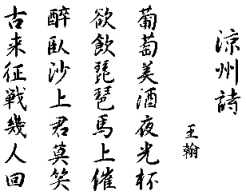 涼州詩
王翰
葡萄美酒夜光杯
欲飲琵琶馬上催
醉臥沙上君莫笑
古來征戰幾人回